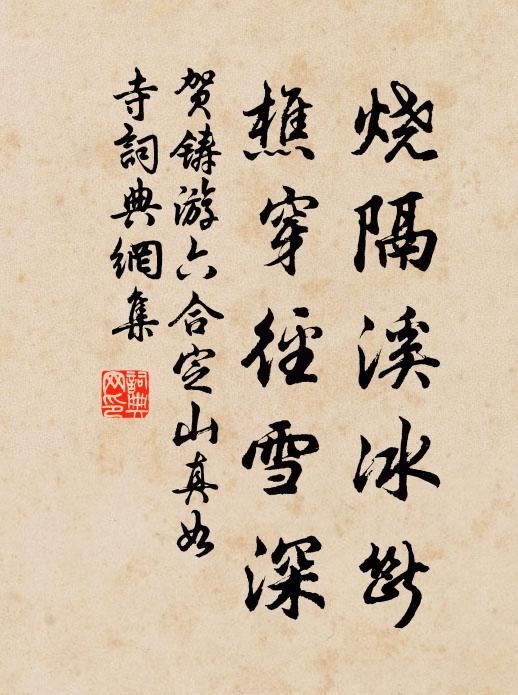 烧隔溪冰断
樵穿径雪深
贺铸游六合定山真如
寺词典網集
詞典網印